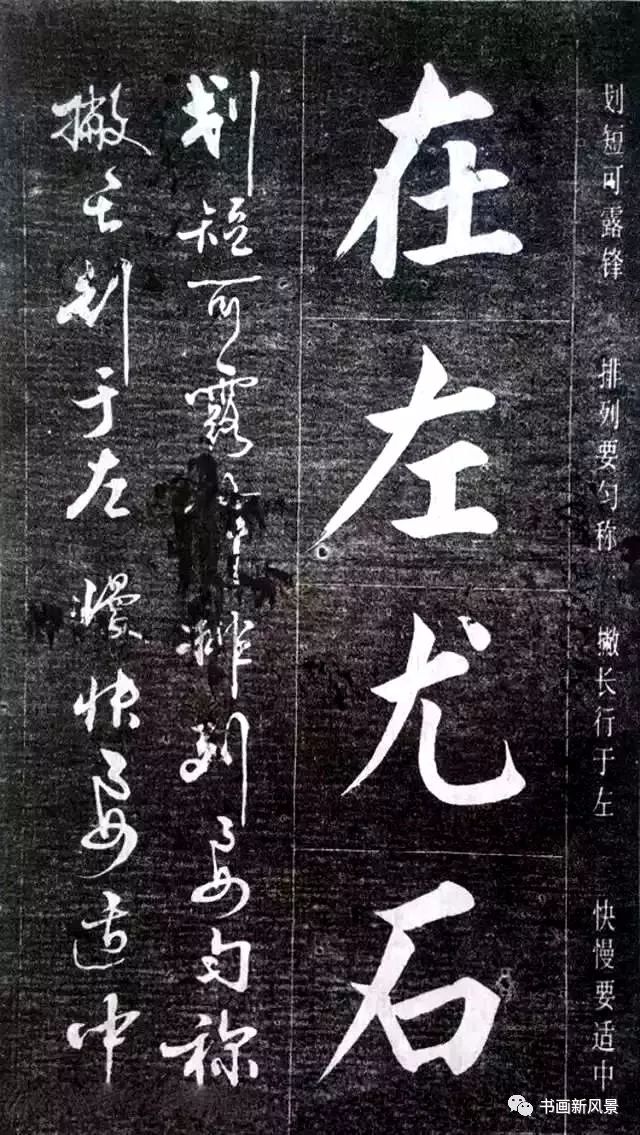 划短可露锋 排列要匀称 撇长行于左 快慢要适中
在左尤石
划短可露锋排列要匀称
撇长于左慢快要适中
书画新风景